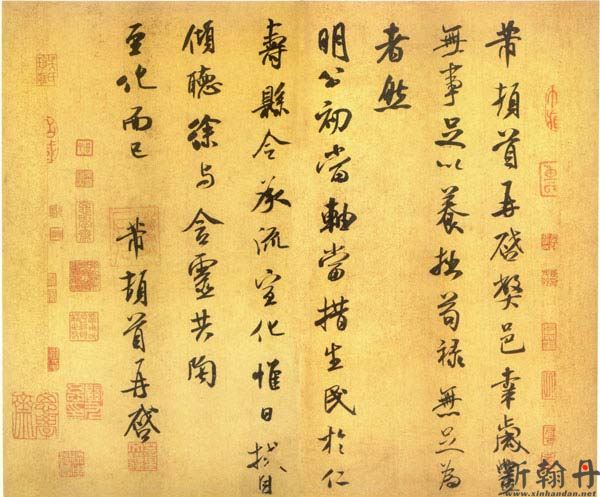 芾頓首再啓弊邑幸歲豐
無事足以養拙苟祿無足為
者然
明公初當軸當措生民於仁
壽縣令承流宣化惟日拭目
傾聽徐与含靈共陶
至化而已 芾頓首再啓
新翰丹
www.xinhandan.net